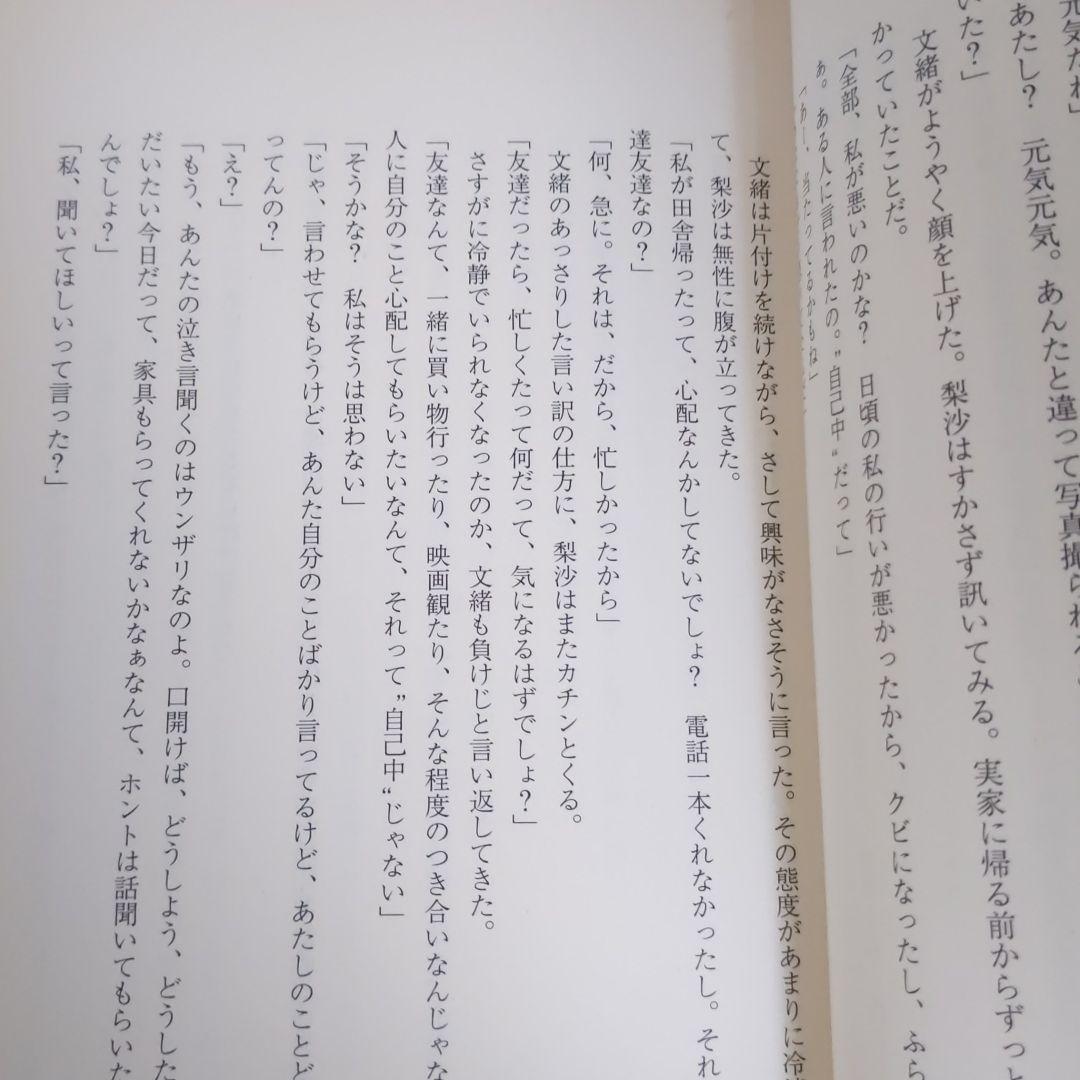 元気だね」
あたし？　元気元気。あんたと違って写真撮られ
いた？」
文緒がようやく顔を上げた。梨沙はすかさず訊いてみる。実家に帰る前からずっと
かっていたことだ。
「全部、私が悪いのかな？　日頃の私の行いが悪かったから、クビになったし、ふら
ぁ。ある人に言われたの。〝自己中〟だって」
「あー、当たってるかもね」
文緒は片付けを続けながら、さして興味がなさそうに言った。その態度があまりに冷
て、梨沙は無性に腹が立ってきた。
「私が田舎帰ったって、心配なんかしてないでしょ？　電話一本くれなかったし。それ
達友達なの？」
「何、急に。それは、だから、忙しかったから」
文緒のあっさりした言い訳の仕方に、梨沙はまたカチンとくる。
「友達だったら、忙しくたって何だって、気になるはずでしょ？」
さすがに冷静でいられなくなったのか、文緒も負けじと言い返してきた。
「友達なんて、一緒に買い物行ったり、映画観たり、そんな程度のつき合いなんじゃな
人に自分のこと心配してもらいたいなんて、それって〝自己中〟じゃない」
「そうかな？　私はそうは思わない」
「じゃ、言わせてもらうけど、あんた自分のことばかり言ってるけど、あたしのことど
ってんの？」
「え？」
「もう、あんたの泣き言聞くのはウンザリなのよ。口開けば、どうしよう、どうした
だいたい今日だって、家具もらってくれないかなぁなんて、ホントは話聞いてもらいた
んでしょ？」
「私、聞いてほしいって言った？」